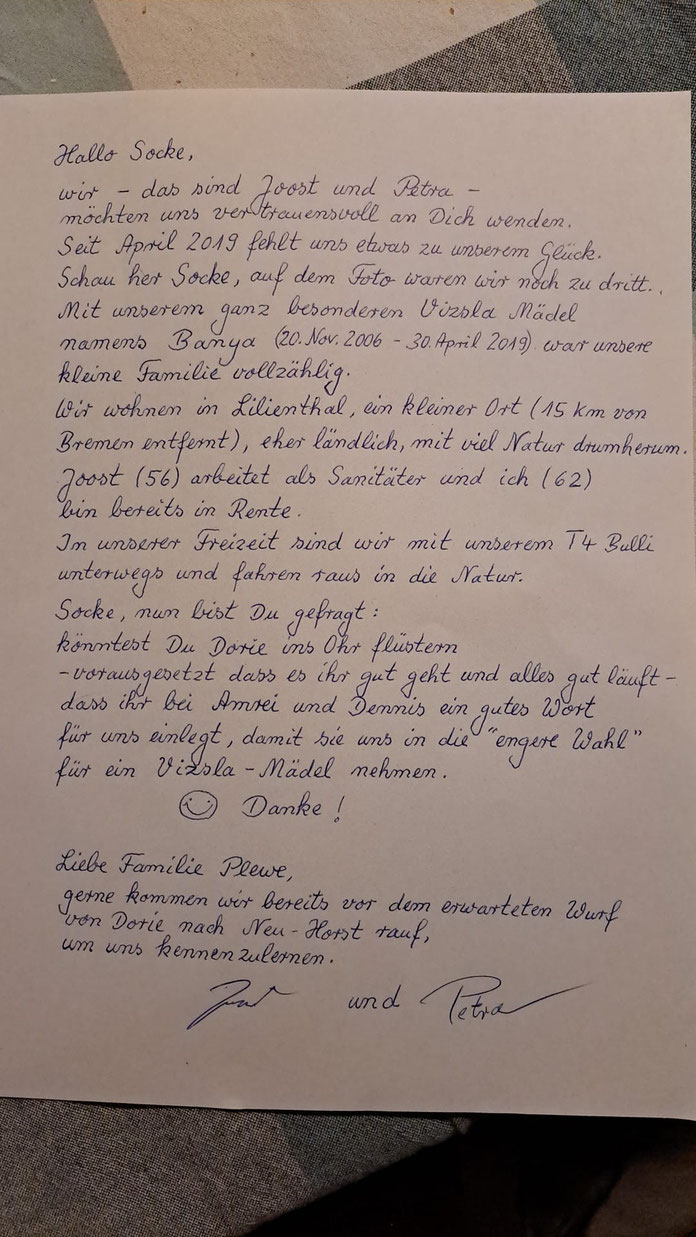 Hallo Socke,
wir - das sind Joost und Petra -
möchten uns vertrauensvoll an Dich wenden.
Seit April 2019 fehlt uns etwas zu unserem Glück.
Schau her Socke, auf dem Foto waren wir noch zu dritt..
Mit unserem ganz besonderen Vizsla Mädel
namens Banya (20. Nov. 2006 - 30. April 2019) war unsere
kleine Familie vollzählig.
Wir wohnen in Lilienthal, ein kleiner Ort (15 km von
Bremen entfernt), eher ländlich, mit viel Natur drumherum.
Joost (56) arbeitet als Sanitäter und ich (62)
bin bereits in Rente.
In unserer Freizeit sind wir mit unserem T4 Bulli
unterwegs und fahren raus in die Natur.
Socke, nun bist Du gefragt:
könntest Du Dorie ins Ohr flüstern
- vorausgesetzt dass es ihr gut geht und alles gut läuft -
dass ihr bei Amrei und Dennis ein gutes Wort
für uns einlegt, damit sie uns in die "engere Wahl"
für ein Vizsla - Mädel nehmen.
☺ Danke!
Liebe Familie Plewe,
gerne kommen wir bereits vor dem erwarteten Wurf
von Dorie nach Neu-Horst rauf,
um uns kennenzulernen.
Joost und Petra